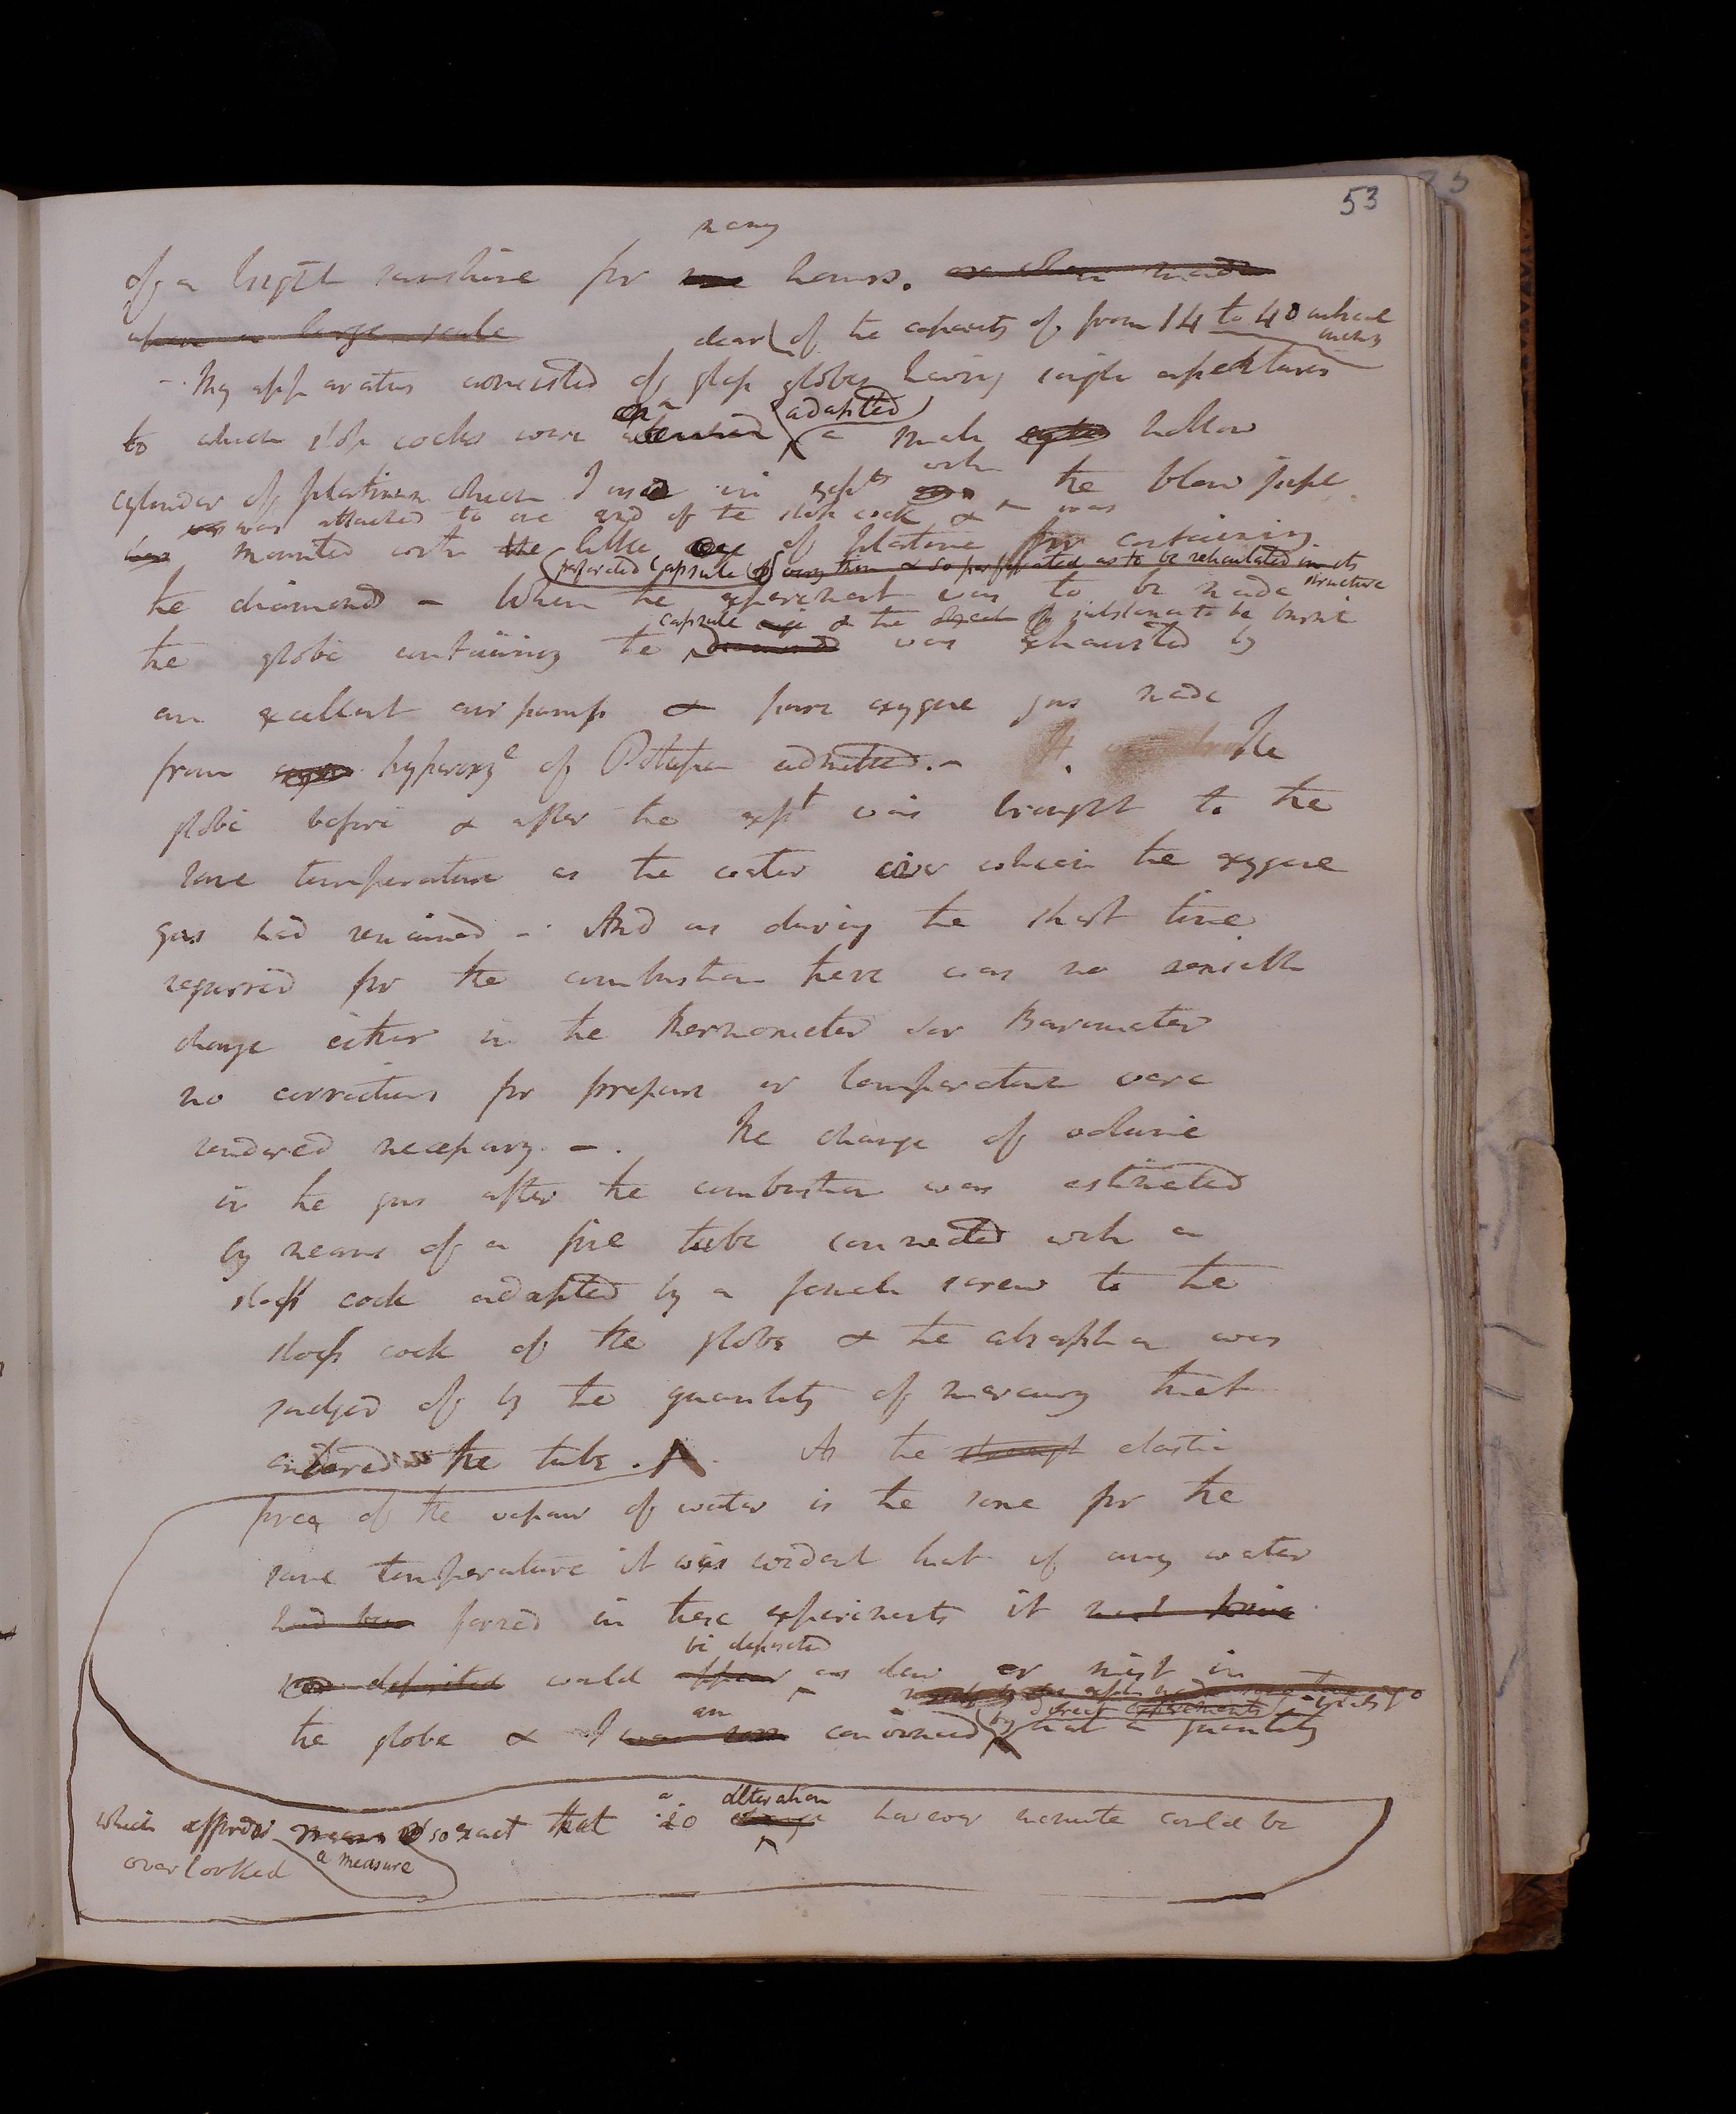 53
many
of a bright sunshine for hours. or when made
upon a large scale
clear of the capacity of from 14 to 40 cubical inches
-. My apparatus consisted of glass globes having single apertures
to which stop cocks were attached adapted a small hollow
cylinder of platinum which I used in expts with the blow pipe
was attached to one end of the stop cock & was
mounted with the little cage of platina for containing
perforated capsule of very thin & so perforated as to be reticulated in its structure
the diamond - When the experiment was to be made
capsule cage & the substance to be burnt
the globe containing the diamond was exhausted by
an excellent air pump & pure oxygene gas made
from hyperoxye of Potassa admitted. - The
globe before & after the expt was brought to the
same temperature as the water over which the oxygene
gas had remained -. And as during the short time
required for the combustion there was no sensible
change either in the thermometer or Barometer
no corrections for pressure or temperature were
rendered necessary. -. The change of volume
in the gas after the combustion was estimated
by means of a fine tube connected with a
stop cock adapted by a female screw to the
stop cock of the globe & the absorption was
judged of by the quantity of mercury that
entered the tube. As the strength elastic
force of the vapour of water is the same for the
same temperature it was evident that if any water
had been formed in these experiments it must have
be deposited
been deposited would appear as dew or mist in
direct experiments
am
the globe & I was soon convinced by that a quantity
alteration
which affords means of so exact that no change however minute could be
overlooked a measure